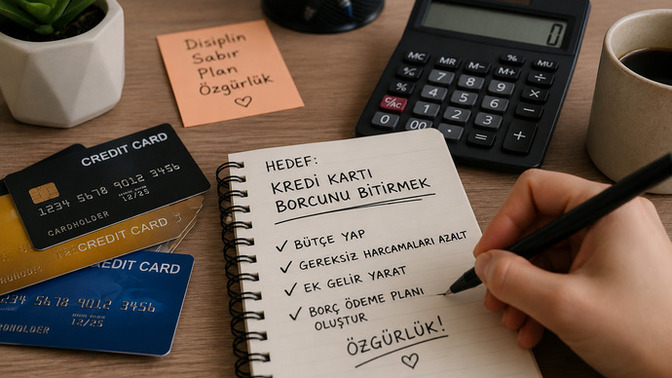 Disiplin
Sabır
Plan
Özgürlük
0
MC
MR
M-
M+
%
÷
7
8
9
4
5
6
×
C/AC
1
2
3
-
0
00
.
=
+
CREDIT CARD
1234 5678 9012 3456
12/25
CARDHOLDER
CREDIT CARD
CREDIT CARD
5678 9012 3456
12/25
HEDEF:
KREDİ KARTI
BORCUNU BİTİRMEK
✓ BÜTÇE YAP
✓ GEREKSİZ HARCAMALARI AZALT
✓ EK GELİR YARAT
✓ BORÇ ÖDEME PLANI
OLUŞTUR
ÖZGÜRLÜK!